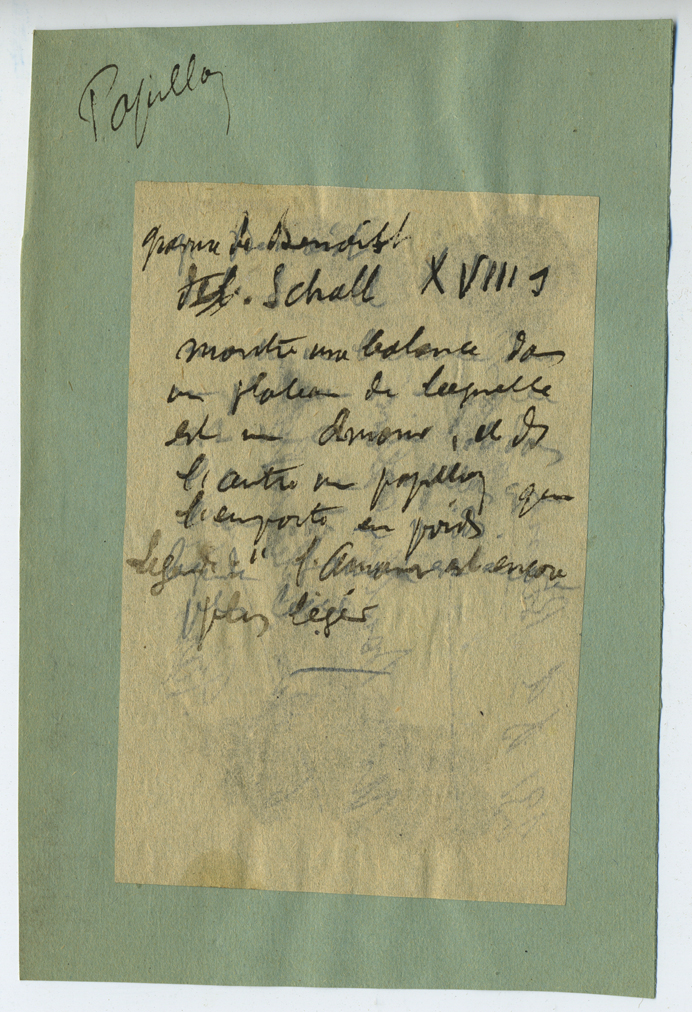 Papillon
gravure de Benoist
d'ap. Schall XVIII s
montre une balance dans
un plateau de laquelle
est un Amour, et ds
l'autre un papillon qui
l'emporte en poids
Légende " l'Amour est encore
plus léger